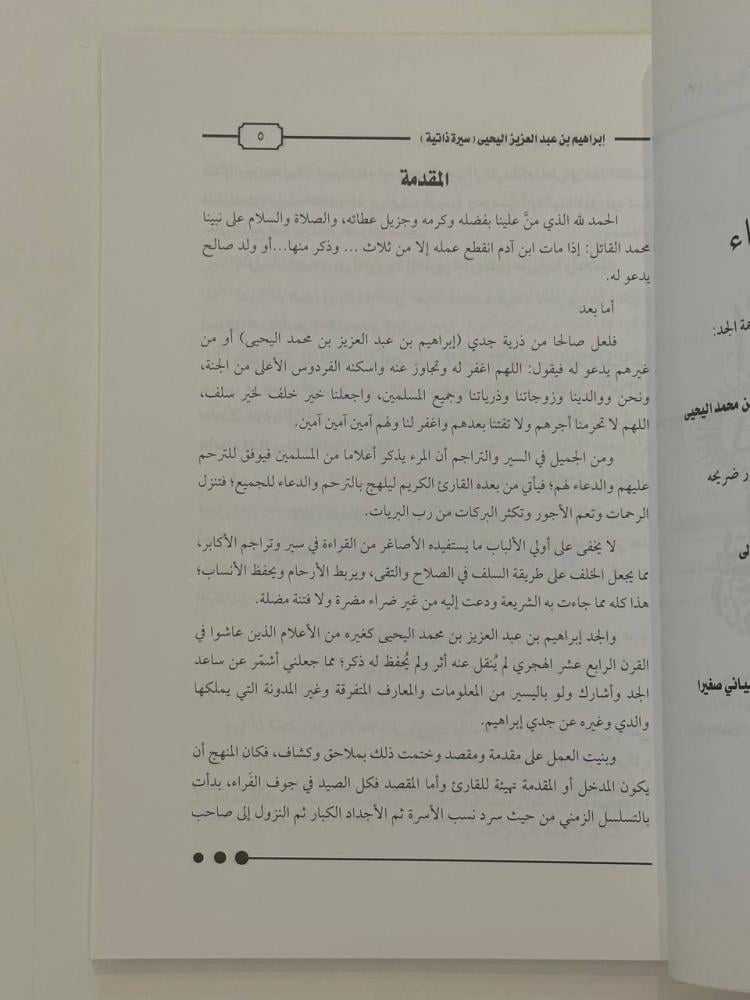 إبراهيم بن عبد العزيز اليحيى (سيرة ذاتية)
٥
المقدمة
الحمد لله الذي منَّ علينا بفضله وكرمه وجزيل عطائه، والصلاة والسلام على نبينا
محمد القائل: إذا مات ابن آدم انقطع عمله إلا من ثلاث ... وذكر منها...أو ولد صالح
يدعو له.
أما بعد
فلعل صالحا من ذرية جدي (إبراهيم بن عبد العزيز بن محمد اليحيى) أو من
غيرهم يدعو له فيقول: اللهم اغفر له وتجاوز عنه واسكنه الفردوس الأعلى من الجنة،
ونحن ووالدينا وزوجاتنا وذرياتنا وجميع المسلمين، واجعلنا خير خلف لخير سلف،
اللهم لا تحرمنا أجرهم ولا تفتنا بعدهم واغفر لنا ولهم آمين آمين آمين.
ومن الجميل في السير والتراجم أن المرء يذكر أعلاما من المسلمين فيوفق للترحم
عليهم والدعاء لهم؛ فيأتي من بعده القارئ الكريم ليلهج بالترحم والدعاء للجميع؛ فتنزل
الرحمات وتعم الأجور وتكثر البركات من رب البريات.
لا يخفى على أولي الألباب ما يستفيده الأصاغر من القراءة في سير وتراجم الأكابر،
مما يجعل الخلف على طريقة السلف في الصلاح والتقى، ويربط الأرحام ويحفظ الأنساب؛
هذا كله مما جاءت به الشريعة ودعت إليه من غير ضراء مضرة ولا فتنة مضلة.
والجد إبراهيم بن عبد العزيز بن محمد اليحيى كغيره من الأعلام الذين عاشوا في
القرن الرابع عشر الهجري لم يُنقل عنه أثر ولم يُحفظ له ذكر؛ مما جعلني أشمّر عن ساعد
الجد وأشارك ولو باليسير من المعلومات والمعارف المتفرقة وغير المدونة التي يملكها
والدي وغيره عن جدي إبراهيم.
وبنيت العمل على مقدمة ومقصد وختمت ذلك بملاحق وكشاف، فكان المنهج أن
يكون المدخل أو المقدمة تهيئة للقارئ وأما المقصد فكل الصيد في جوف الفَراء، بدأت
بالتسلسل الزمني من حيث سرد نسب الأسرة ثم الأجداد الكبار ثم النزول إلى صاحب
الجد:
بن محمد اليحيى
ضريحه
صغيرا